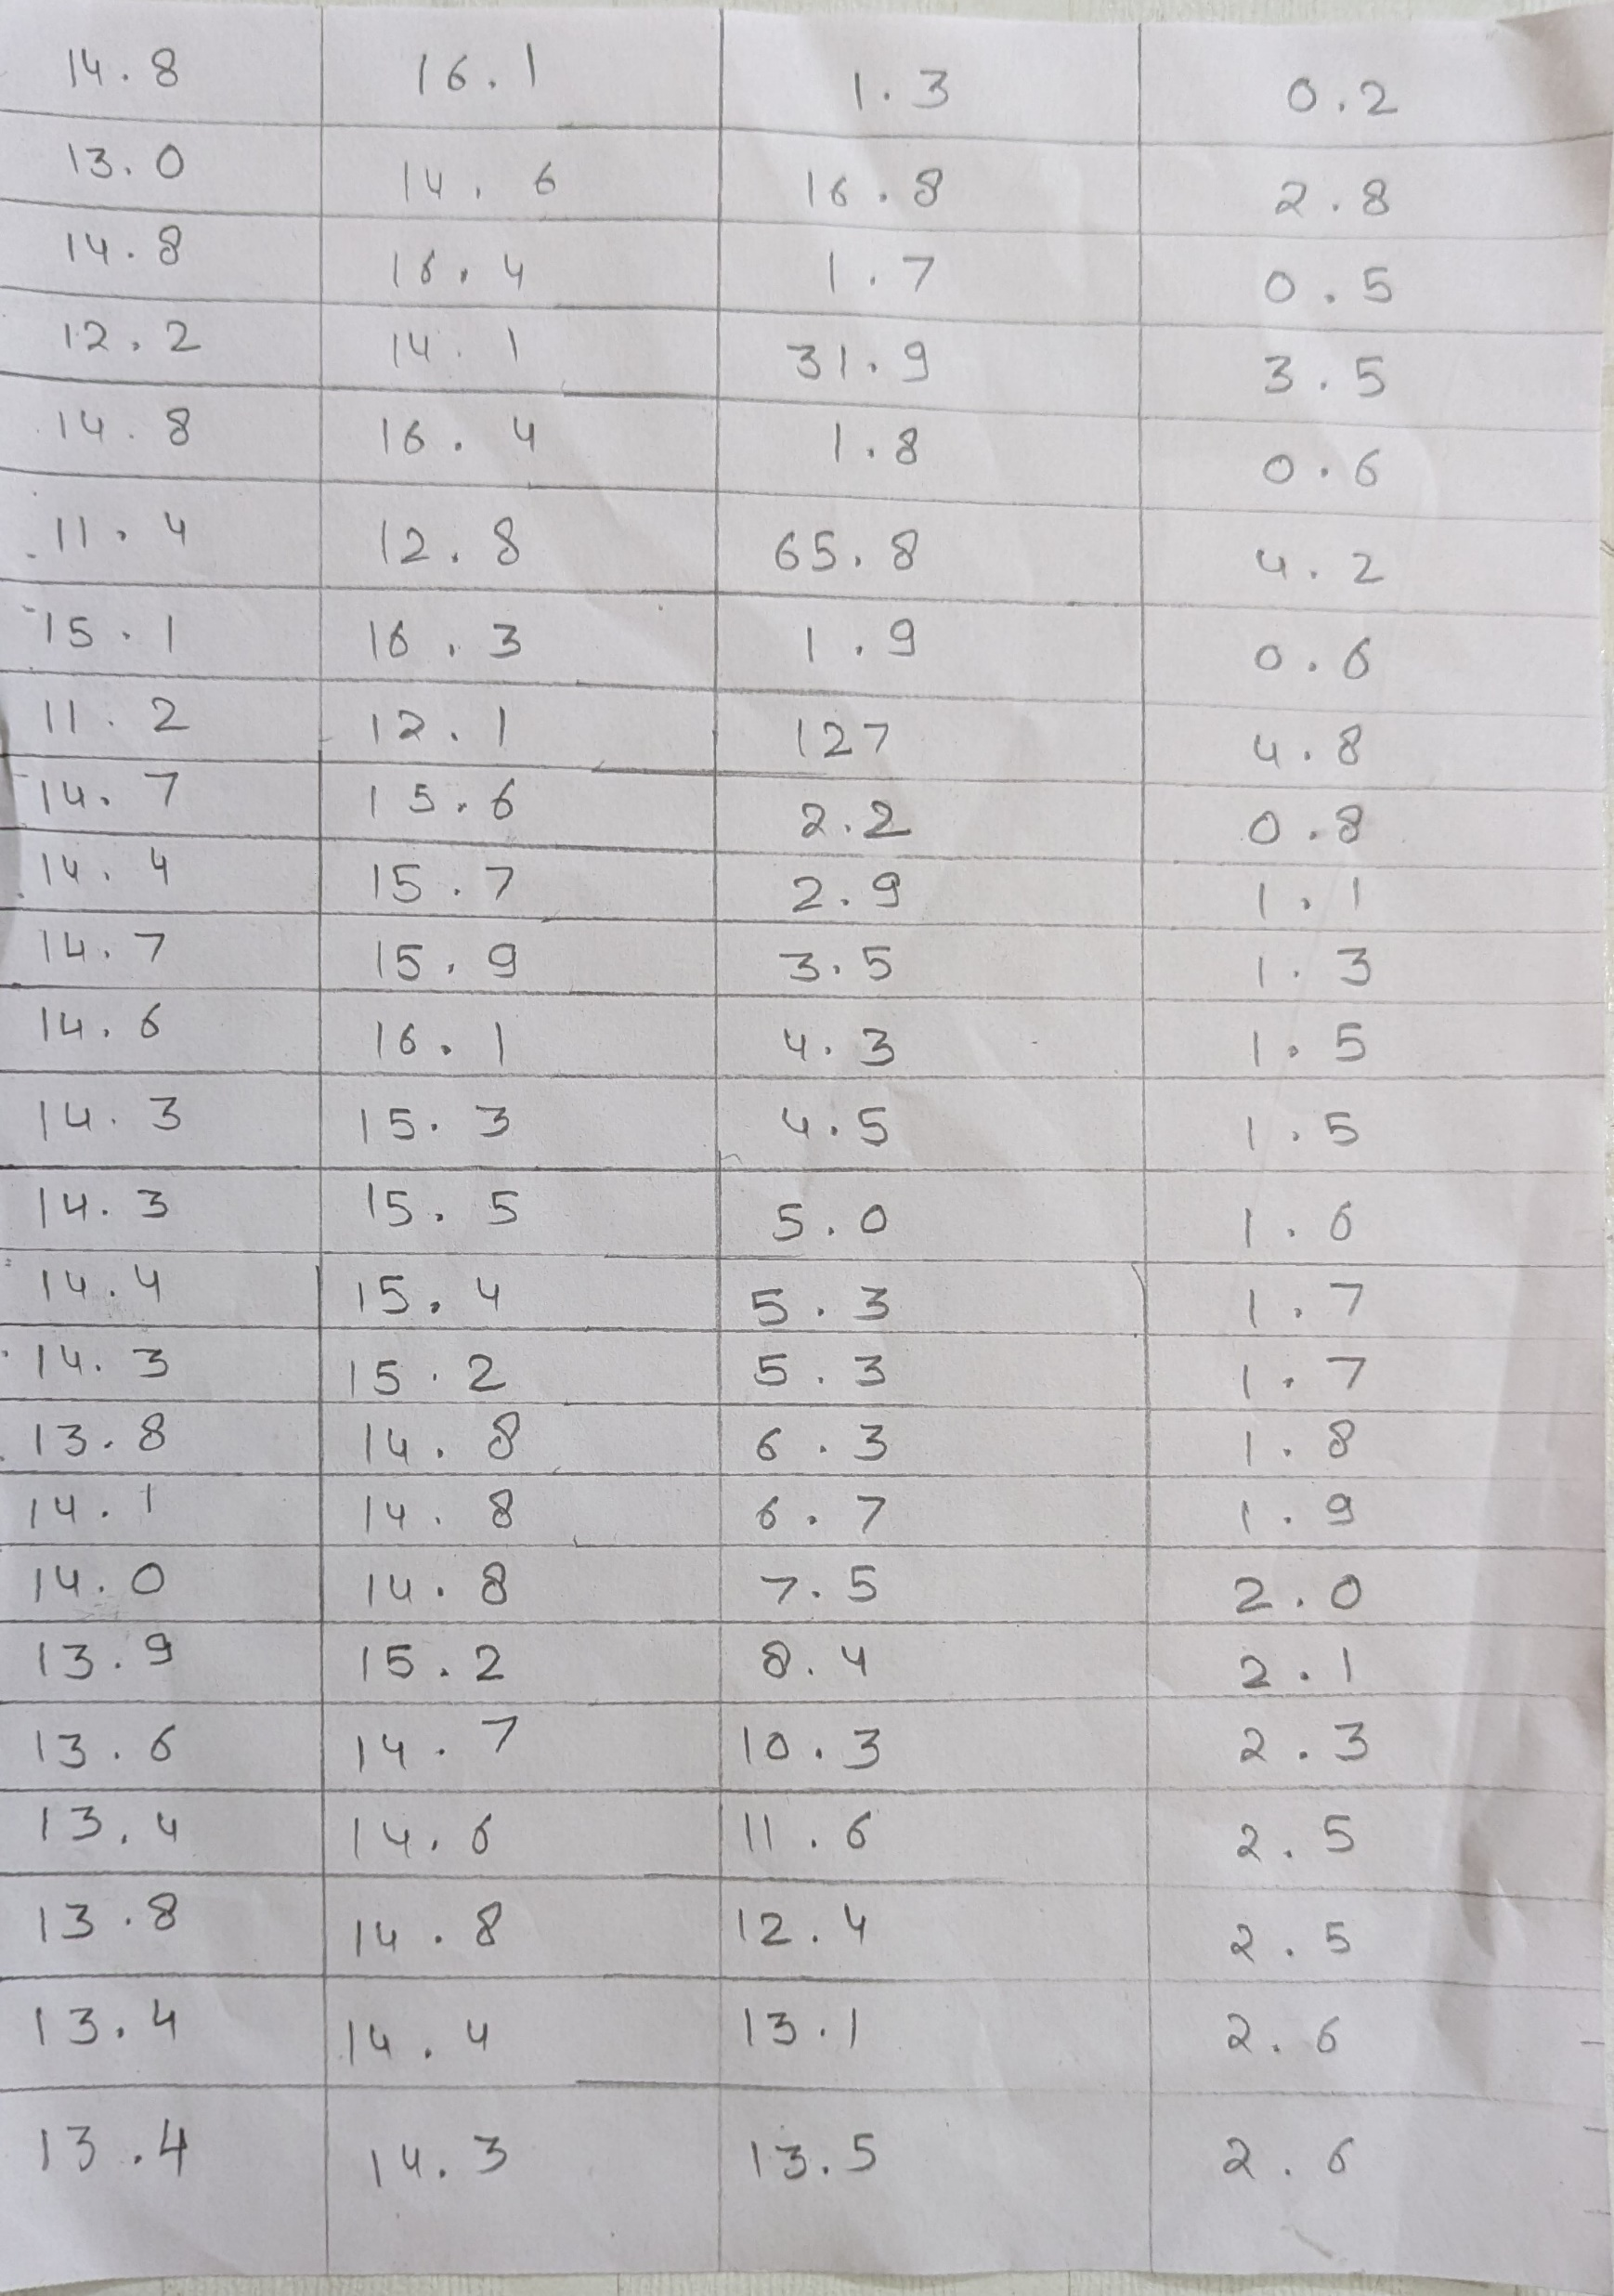 14.8 16.1 1.3 0.2
13.0 14.6 16.8 2.8
14.8 16.4 1.7 0.5
12.2 14.1 31.9 3.5
14.8 16.4 1.8 0.6
11.4 12.8 65.8 4.2
15.1 16.3 1.9 0.6
11.2 12.1 127 4.8
14.7 15.6 2.2 0.8
14.4 15.7 2.9 1.1
14.7 15.9 3.5 1.3
14.6 16.1 4.3 1.5
14.3 15.3 4.5 1.5
14.3 15.5 5.0 1.6
14.4 15.4 5.3 1.7
14.3 15.2 5.3 1.7
13.8 14.8 6.3 1.8
14.1 14.8 6.7 1.9
14.0 14.8 7.5 2.0
13.9 15.2 8.4 2.1
13.6 14.7 10.3 2.3
13.4 14.6 11.6 2.5
13.8 14.8 12.4 2.5
13.4 14.4 13.1 2.6
13.4 14.3 13.5 2.6